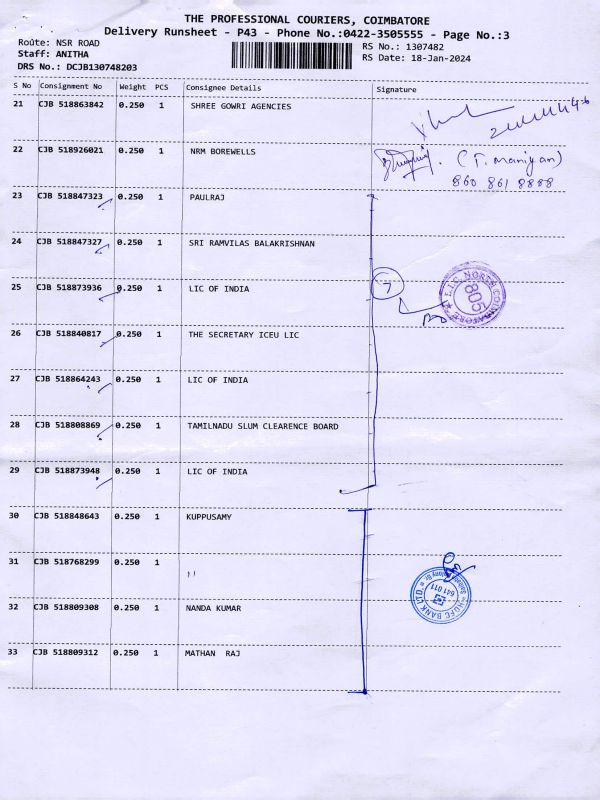 THE PROFESSIONAL COURIERS, COIMBATORE
Delivery Runsheet - P43 - Phone No.:0422-3505555 - Page No.:3
Route: NSR ROAD
RS No.: 1307482
Staff: ANITHA
RS Date: 18-Jan-2024
DRS No.: DCJB130748203
S No Consignment No Weight PCS Consignee Details Signature
21 CJB 518863842 0.250 1 SHREE GOWRI AGENCIES
22 CJB 518926021 0.250 1 NRM BOREWELLS (T. maniyan)
860 861 8888
23 CJB 518847323 0.250 1 PAULRAJ
24 CJB 518847327 0.250 1 SRI RAMVILAS BALAKRISHNAN
25 CJB 518873936 0.250 1 LIC OF INDIA 7
L.I.C. NORTH COIMBATORE
805
26 CJB 518840817 0.250 1 THE SECRETARY ICEU LIC
27 CJB 518864243 0.250 1 LIC OF INDIA
28 CJB 518808869 0.250 1 TAMILNADU SLUM CLEARENCE BOARD
29 CJB 518873948 0.250 1 LIC OF INDIA
30 CJB 518848643 0.250 1 KUPPUSAMY
31 CJB 518768299 0.250 1 ''
HDFC BANK LTD
641 011
32 CJB 518809308 0.250 1 NANDA KUMAR
33 CJB 518809312 0.250 1 MATHAN RAJ